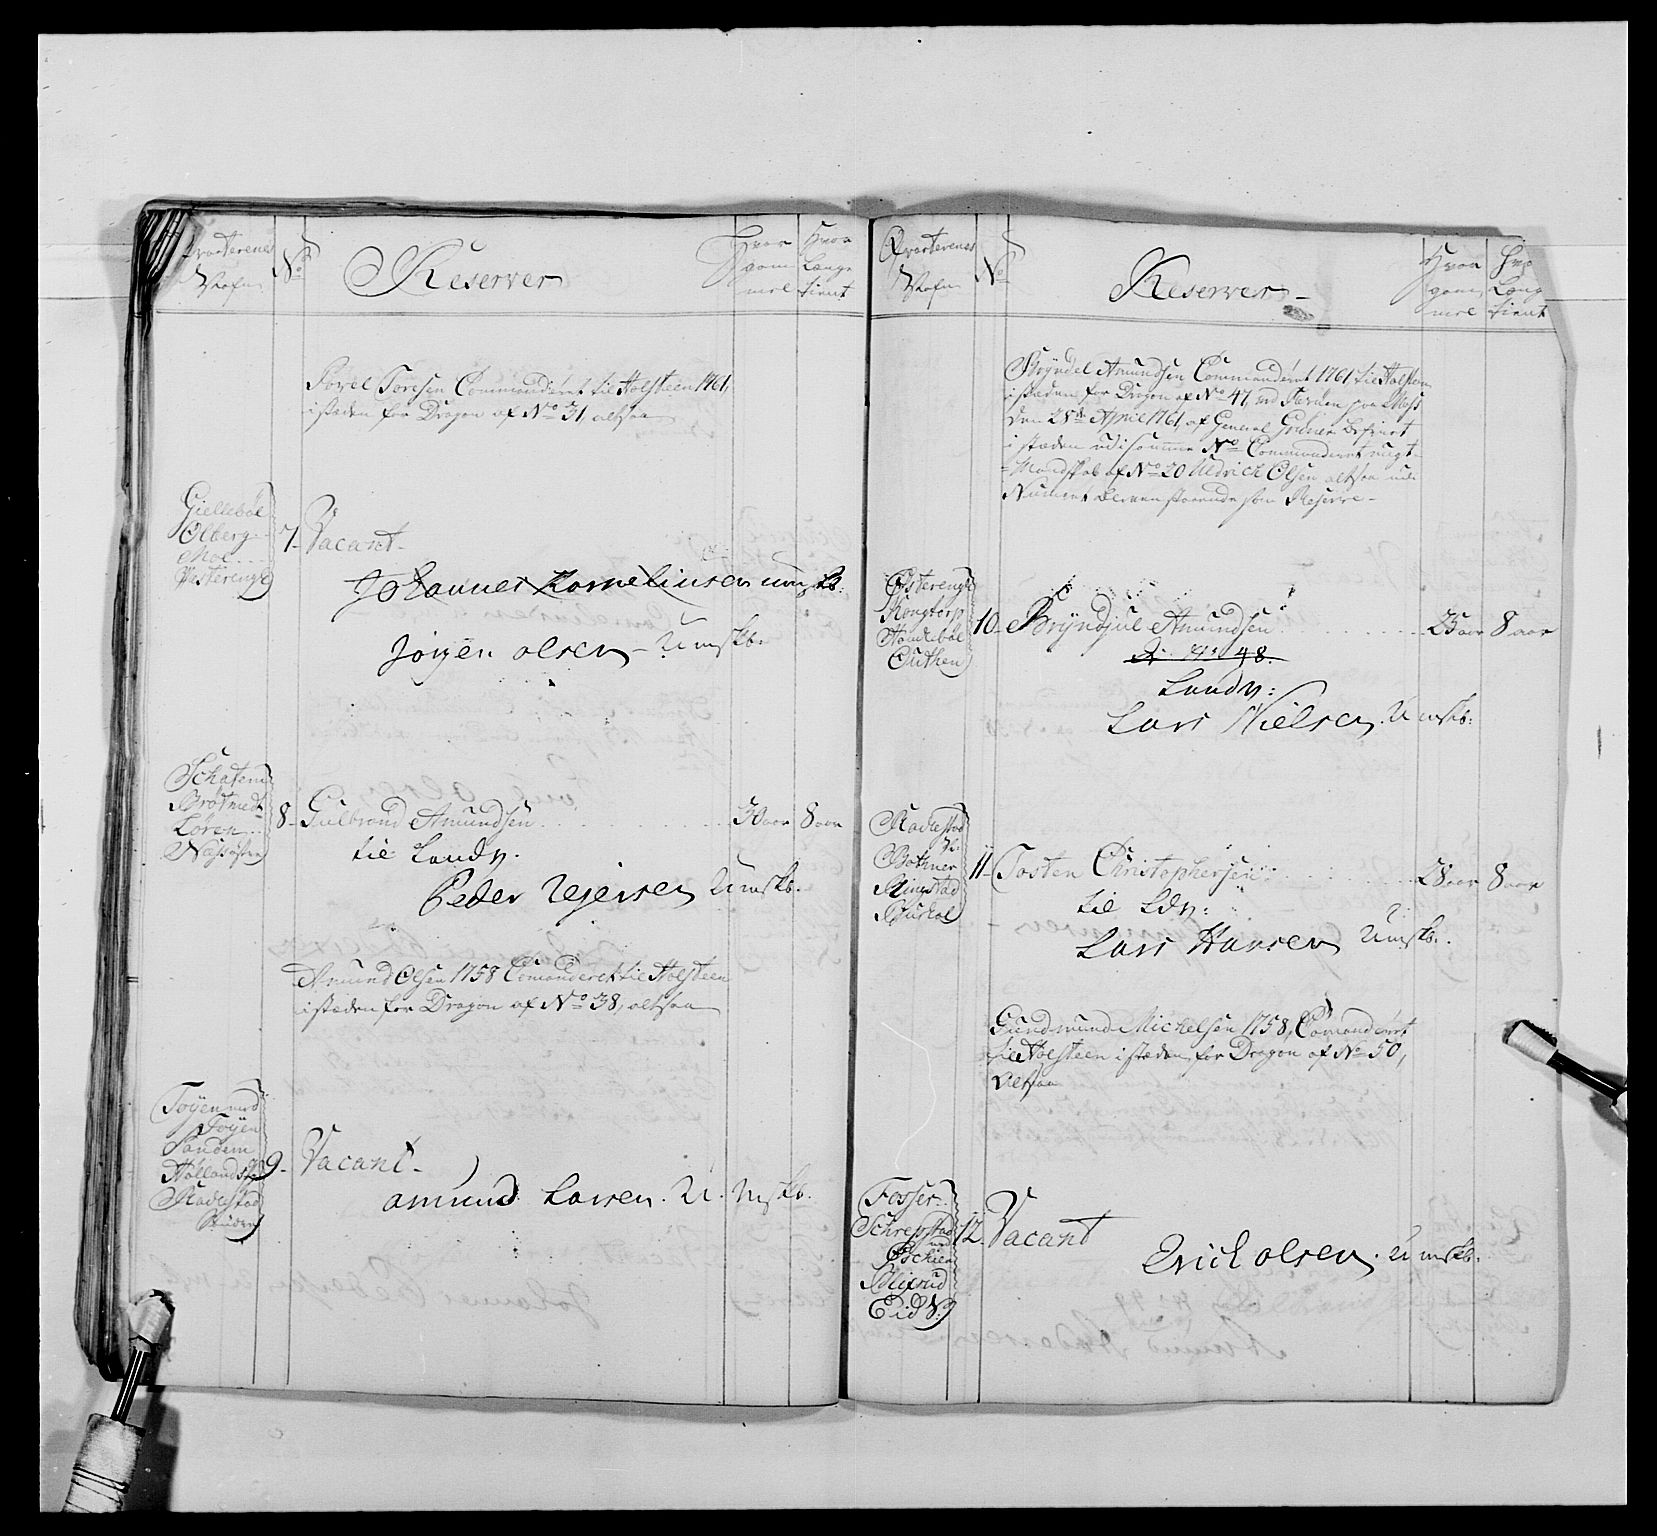 Qvarterenes
Nafn
No
Reserver
Hvor
gam̄
mel
Hvor
Længe
tient
Povel Toresen Commanderet til Holsteen 1761,
istæden for Dragon af No 31, altsaa
Giellebøl
Olberg
Moe
Westerenge
7
Vacant
Johannes Korneliusen umskb:
Jørgen olsen Umskb.
Schaten
Brotned
Løren
8
Gulbrand Amundsen
30 aar
8 aar
til Landv.
Peder Rejersen Umskb.
Amund Olsen 1758 Comanderet til Holsteen
istæden for Dragon af No 38, altsaa
Tøyen med
Tøyen
Sandem
Rakestad
9
Vacant
amund Larsen. U. mskb.
Qvarterenes
Nafn
No
Reserver
Hvor
gam
mel
Hvo
Læng
tient
Bryndel Amundsen Commanderet 1761 til Holsteen
istæden for Dragon af No 47, ved paa Moss
den 28de April 1761, af General
istæden udi samme No Commanderet
Mandskab af No 20 Uldrich Olsen altsaa
Numeret staaende som Reserve
Østerenge
Kongtorp
Handebøl
Outhen
10
Bryndjul Amundsen
25 aar
8 aar
No 48.
Landv:
Lars Nielsen. Umskb:
Rakestad
Bothner
Ringstad
11
Tosten Christophersen
28 aar
8 aar
til Ldv:
Lars Hansen Umskb.
Gundmund Michelsen 1758, Comanderet
til Holsteen istæden for Dragon af No 50,
altsaa
Fosser
Schrepstad
med
Eschien
Eid N:
12
Vacant
Erich olsen. Umskb.